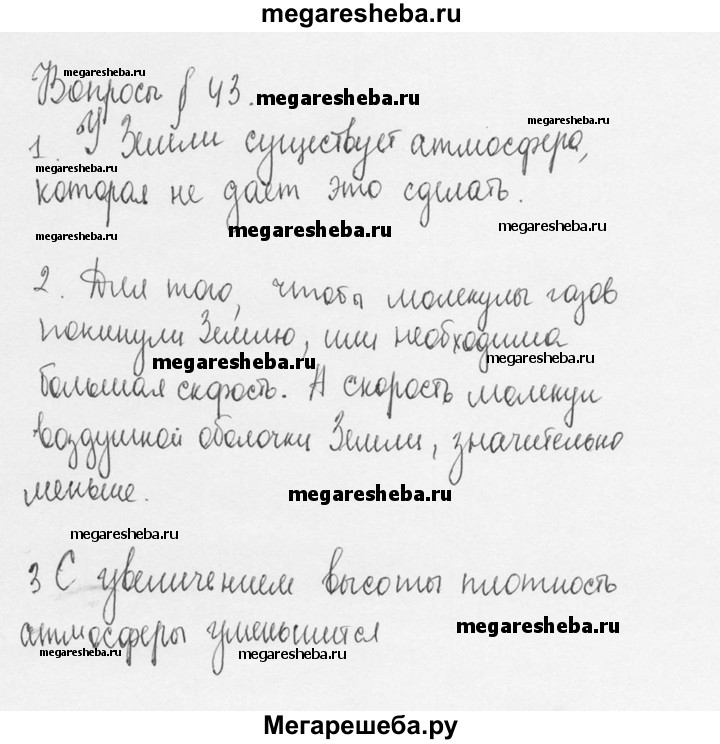 megaresheba.ru
megaresheba.ru
Вопросы § 43. megaresheba.ru
megaresheba.ru
1. У Земли существует атмосфера,
megaresheba.ru
которая не дает это сделать.
megaresheba.ru megaresheba.ru megaresheba.ru
2. Для того, чтобы молекулы газов
покинули Землю, им необходима
megaresheba.ru megaresheba.ru
большая скорость. А скорость молекул
воздушной оболочки Земли, значительно
меньше. megaresheba.ru
megaresheba.ru
3 С увеличением высоты плотность
атмосферы уменьшится megaresheba.ru
megaresheba.ru megaresheba.ru
Мегарешеба.ру